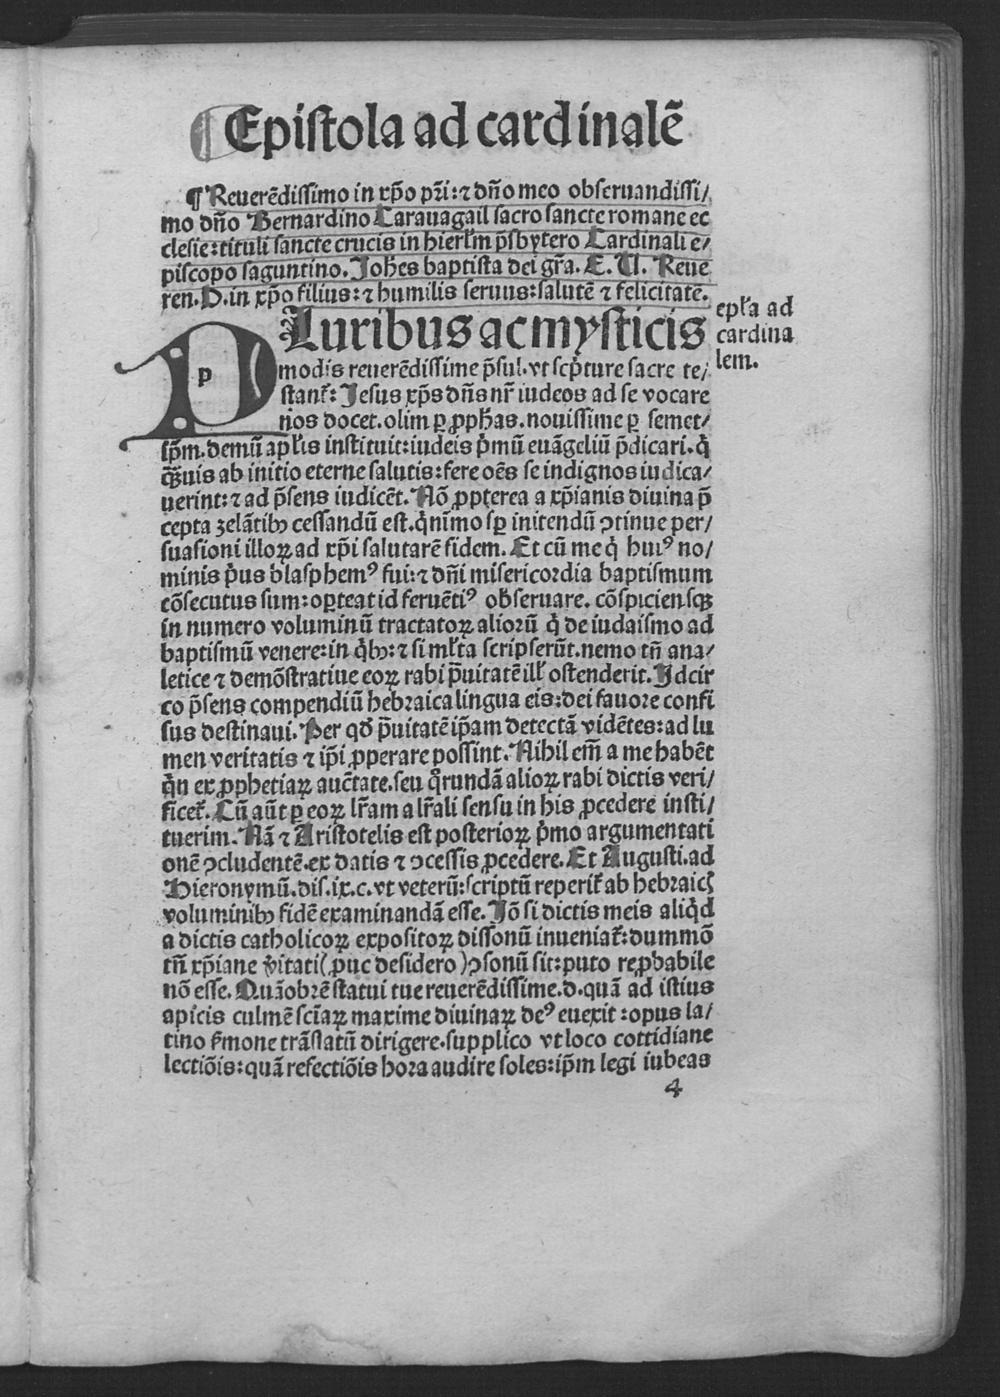 ¶ Epistola ad cardinalē
¶ Reuerēdissimo in xp̄o pr̄i: ⁊ dn̄o meo obseruandissi/
mo dn̄o Bernardino Carauagail sacro sancte romane ec
clesie: tituli sancte crucis in hierl̄m p̄sbytero Cardinali e/
piscopo saguntino. Joh̄es baptista dei gr̄a. E. U. Reue
ren. D. in xp̄o filius: ⁊ humilis seruus: salutē ⁊ felicitatē.
PLuribus ac mysticis
modis reuerēdissime p̄sul. vt scp̄ture sacre te/
stant᷑: Jesus xp̄s dn̄s nr̄ iudeos ad se vocare
nos docet. olim ꝑ ꝓph̄as. nouissime ꝑ semet/
ip̄m. demū apl̄is instituit: iudeis p̄mū euāgeliū p̄dicari. q̇
qꝫuis ab initio eterne salutis: fere oēs se indignos iudica/
uerint: ⁊ ad p̄sens iudicēt. Nō ꝓpterea a xp̄ianis diuina p̄
cepta zelātibꝫ cessandū est. qn̄imo sꝑ initendū ↄtinue per/
suasioni illoꝝ ad xp̄i salutarē fidem. Et cū me q̇ huiꝰ no/
minis p̄us blasphemꝰ fui: ⁊ dn̄i misericordia baptismum
cōsecutus sum: oꝑteat id feruētiꝰ obseruare. cōspiciensqꝫ
in numero voluminū tractatoꝝ alioꝝ q̇ de iudaismo ad
baptismū venere: in q̇bꝫ: ⁊ si ml̄ta scripserūt. nemo tn̄ ana/
letice ⁊ demōstratiue eoꝝ rabi p̄uitatē ill̄ ostenderit. Jdcir
co p̄sens compendiū hebraica lingua eis: dei fauore confi
sus destinaui. Per qd̄ p̄uitatē ip̄am detectā vidētes: ad lu
men veritatis ⁊ ip̄i ꝓperare possint. Nihil em̄ a me habēt
q̇n ex ꝓphetiaꝝ auctate. seu qrundā alioꝝ rabi dictis veri/
ficet᷑. Cū aūt ꝑ eoꝝ lr̄am a lr̄ali sensu in his ꝓcedere insti/
tuerim. Nā ⁊ Aristotelis est posterioꝝ p̄mo argumentati
onē ↄcludentē. ex datis ⁊ ↄcessis ꝓcedere. Et Augusti. ad
Hieronymū. dis. ix. c. vt veterū: scriptū reperit᷑ ab hebraicꝭ
voluminibꝫ fidē examinandā esse. Jō si dictis meis aliqd̄
a dictis catholicoꝝ expositoꝝ dissonū inueniat᷑: dummō
tn̄ xp̄iane v̄itati (ꝓuc desidero) ↄsonū sit: puto reꝓbabile
nō esse. Quāobrē statui tue reuerēdissime. d. quā ad istius
apicis culmē sciaꝝ maxime diuinaꝝ deꝰ euexit: opus la/
tino ẜmone trāslatū dirigere. supplico vt loco cottidiane
lectiōis: quā refectiōis hora audire soles: ip̄m legi iubeas
4
epl̄a ad
cardina
lem.